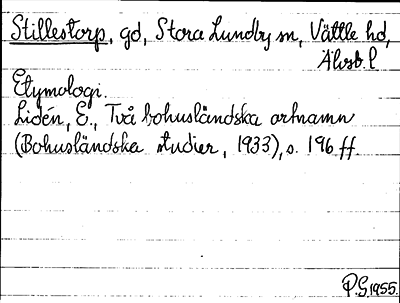 Stillestorp, gd, Stora Lundby sn, Vättle hd,
Älvsb. l
Etymologi.
Lidén, E., Två bohusländska ortnamn
(Bohusländska studier, 1933), s. 196 ff.
P.G. 1955.